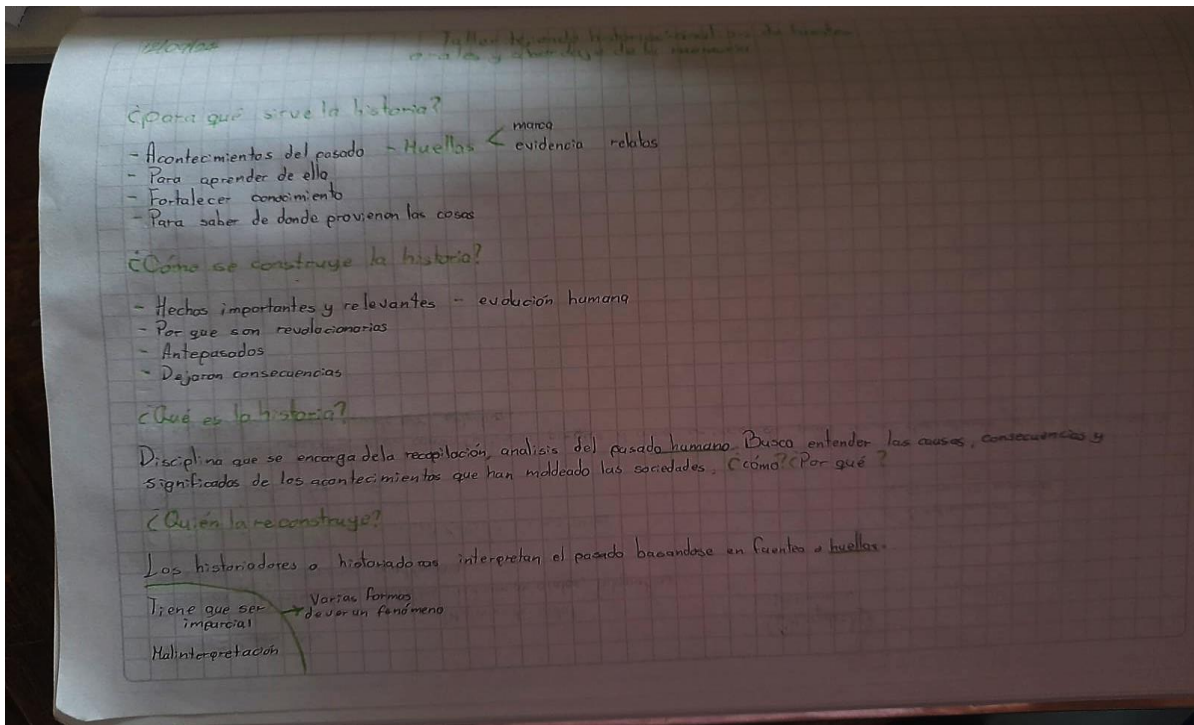 ¿Para qué sirve la historia?
- Acontecimientos del pasado - Huellas < marca
evidencia relatos
- Para aprender de ella
- Fortalecer conocimiento
- Para saber de donde provienen las cosas
¿Cómo se construye la historia?
- Hechos importantes y relevantes - evolución humana
- Por que son revolucionarios
- Antepasados
- Dejaron consecuencias
¿Qué es la historia?
Disciplina que se encarga dela recopilación, analisis del pasado humano. Busca entender las causas, consecuencias y
significados de los acontecimientos que han moldeado las sociedades. ¿cómo? ¿Por qué?
¿Quién la reconstruye?
Los historiadores o historiadoras interpretan el pasado basandose en fuentes o huellas.
Tiene que ser → Varias formas
imparcial de ver un fenómeno
Malinterpretación